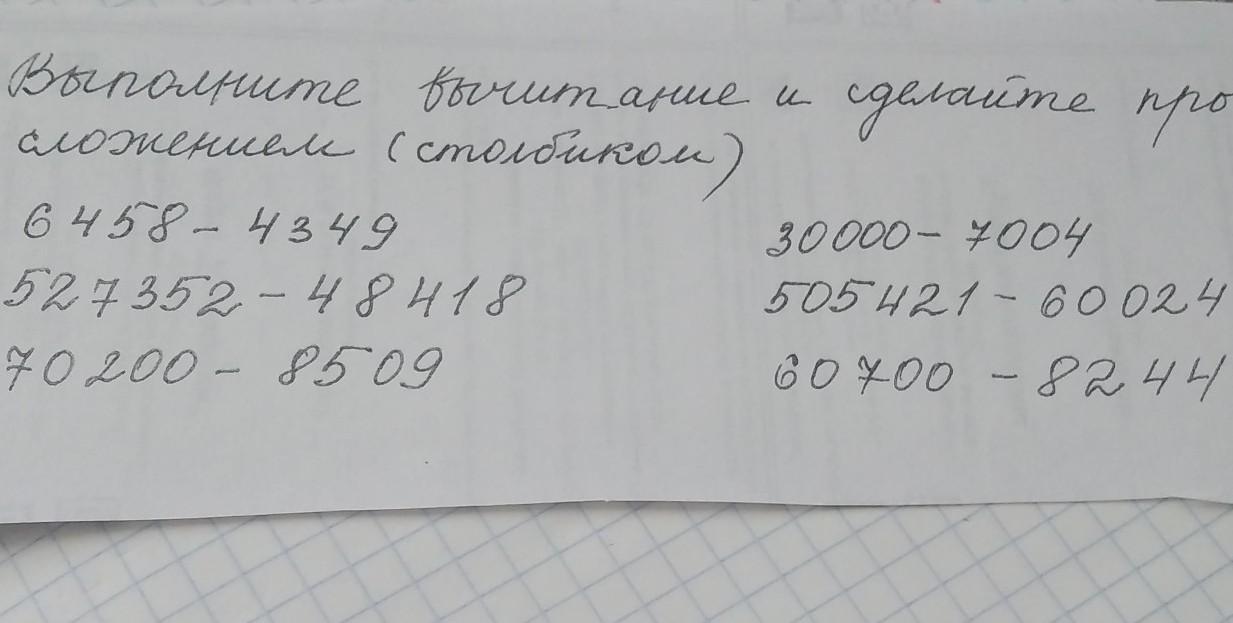 Выполните вычитание и сделайте про
сложением (столбиком)
6458 - 4349 30000 - 7004
527352 - 48418 505421 - 60024
70200 - 8509 60700 - 8244